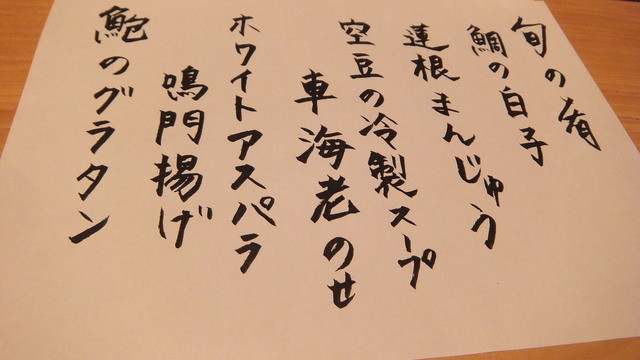 旬の肴
鯛の白子
蓮根まんじゅう
空豆の冷製スープ
車海老のせ
ホワイトアスパラ
鳴門揚げ
鮑のグラタン